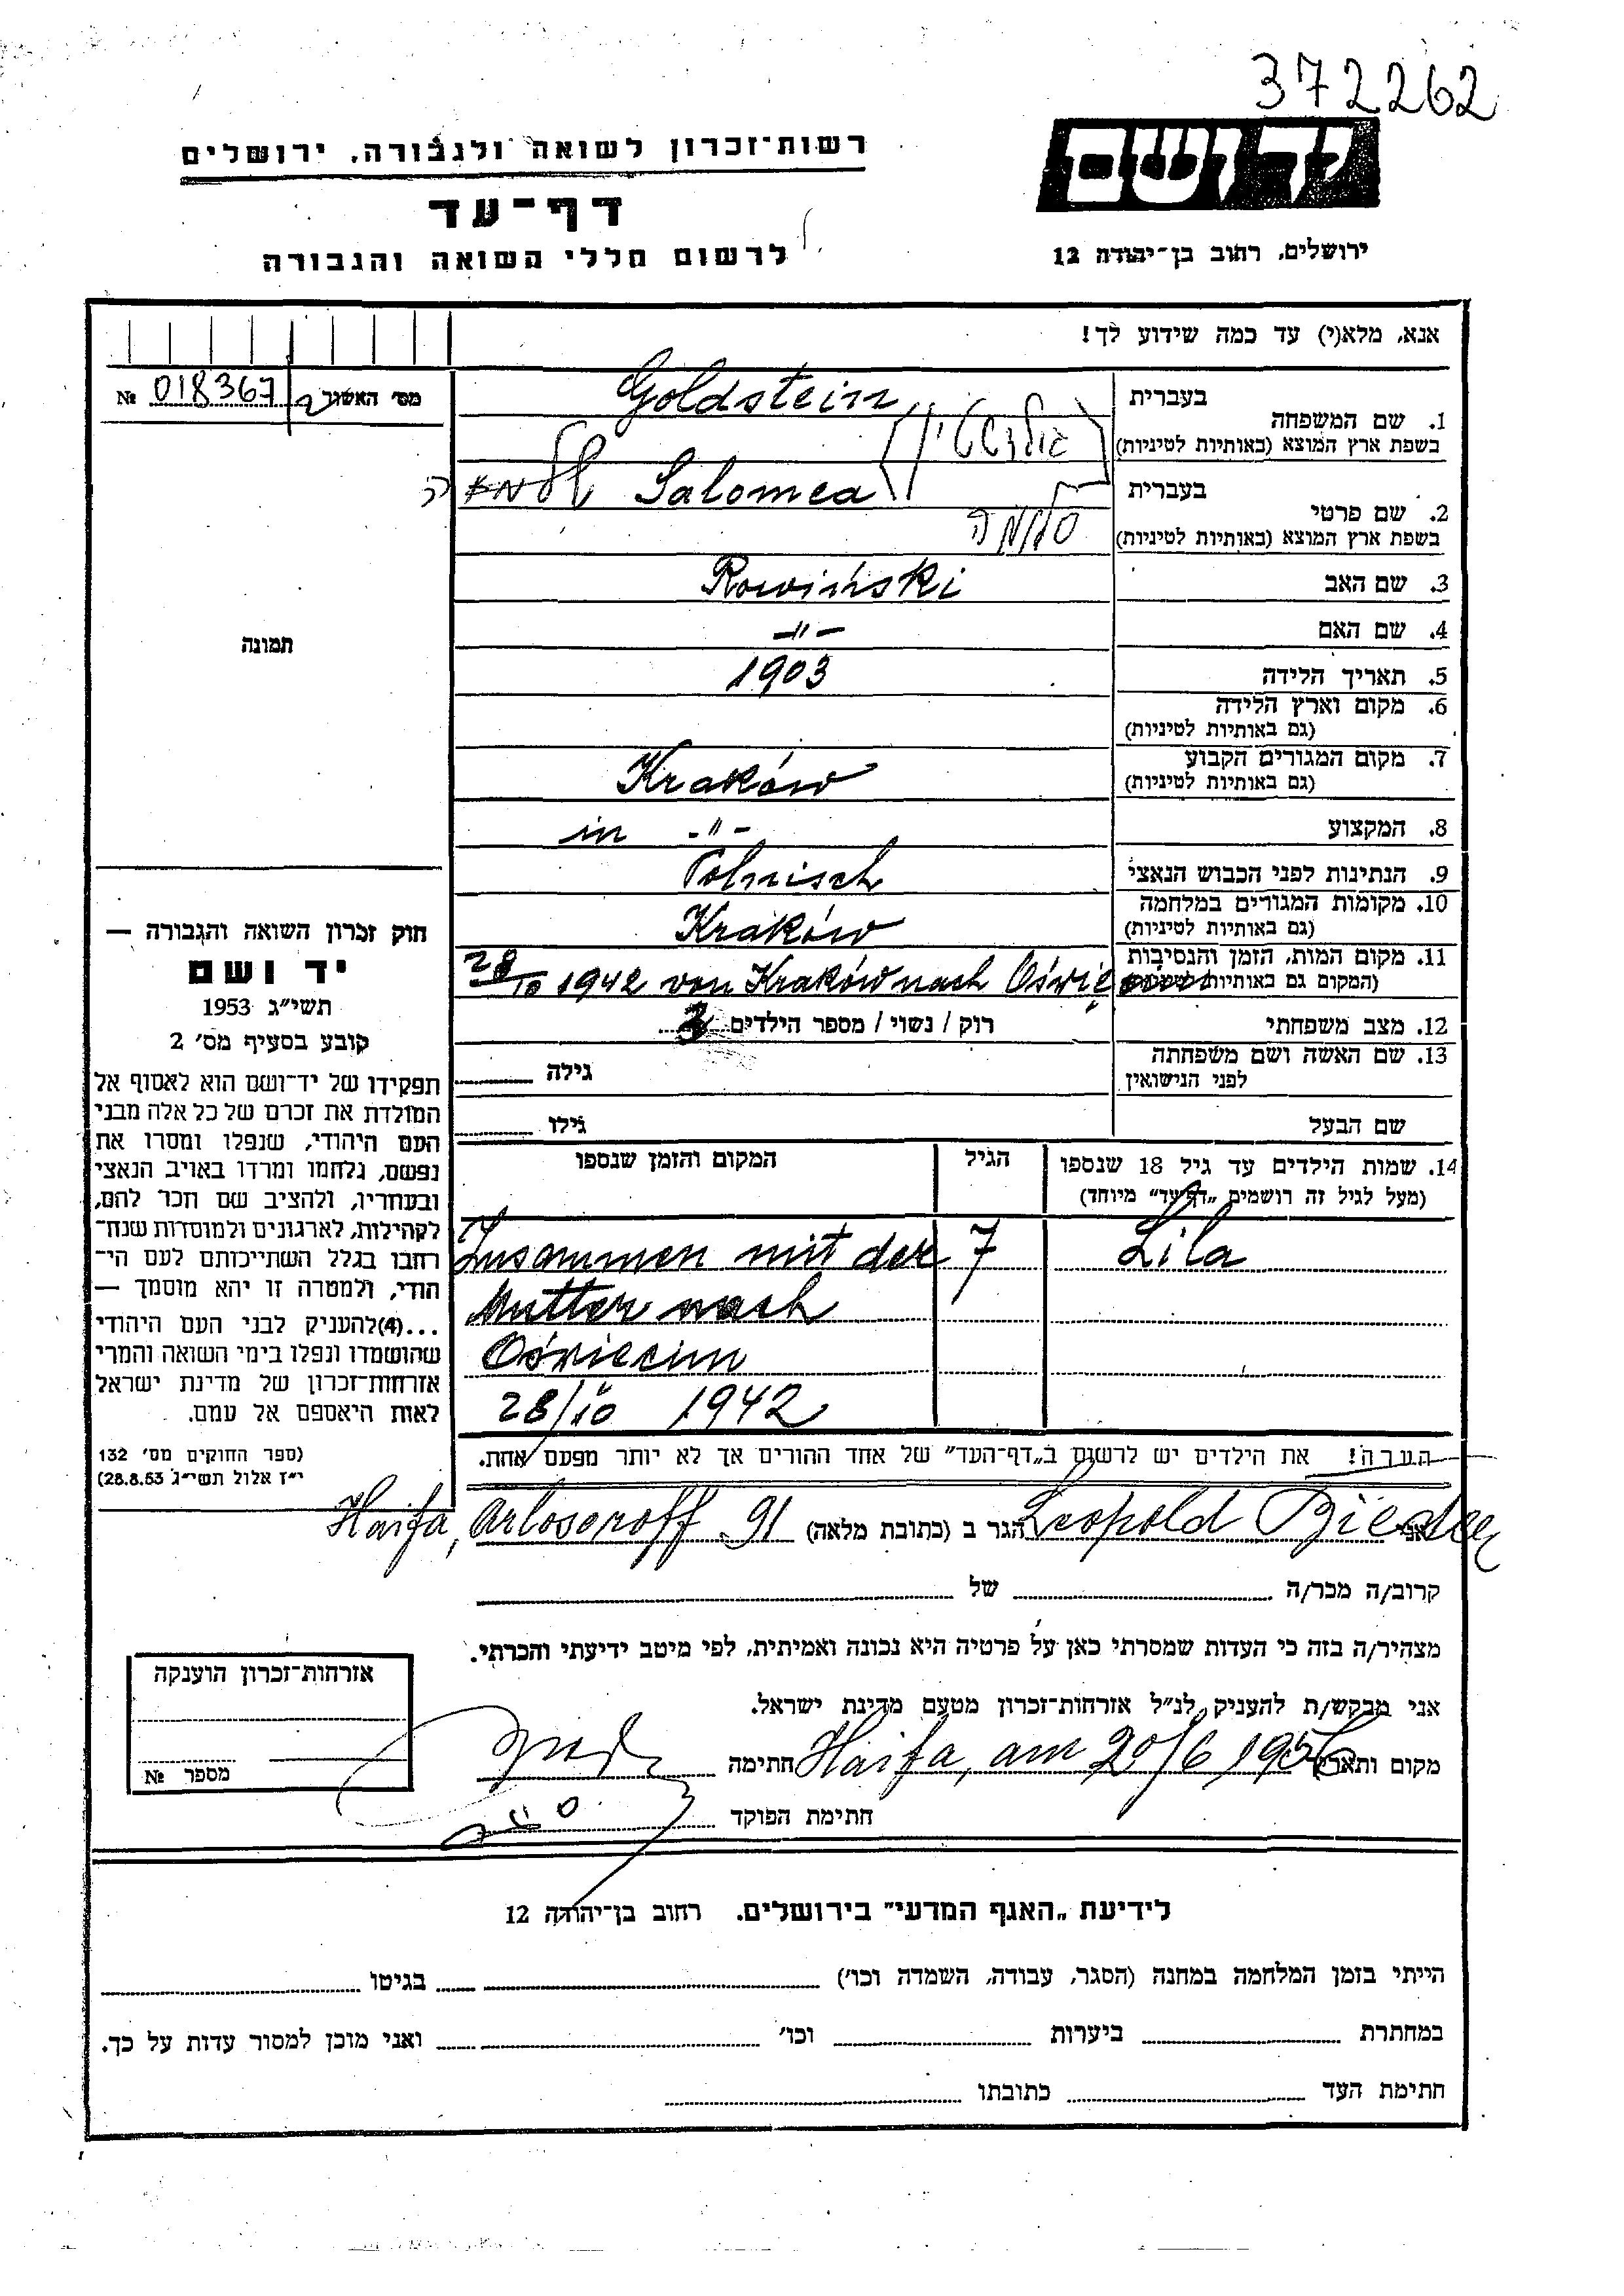 372262
יד ושם
רשות־זכרון לשואה ולגבורה, ירושלים
דף־עד
לרשום חללי השואה והגבורה
ירושלים, רחוב בן־יהודה 12
אנא, מלא(י) עד כמה שידוע לך!
מס׳ האשור № 018367
1. שם המשפחה
בעברית
Goldstein
גולדשטיין
בשפת ארץ המוצא (באותיות לטיניות)
2. שם פרטי
בעברית
Salomea
סלומאה
בשפת ארץ המוצא (באותיות לטיניות)
3. שם האב Rowiński
4. שם האם -"-
5. תאריך הלידה 1903
6. מקום וארץ הלידה
(גם באותיות לטיניות)
7. מקום המגורים הקבוע
(גם באותיות לטיניות) Kraków
8. המקצוע in -"-
9. הנתינות לפני הכבוש הנאצי Polnisch
10. מקומות המגורים במלחמה
(גם באותיות לטיניות) Kraków
11. מקום המות, הזמן והנסיבות
(המקום גם באותיות
28/10 1942 von Kraków nach Oświęcim
12. מצב משפחתי רוק / נשוי / מספר הילדים 3
13. שם האשה ושם משפחתה
לפני הנישואין גילה
שם הבעל גילו
14. שמות הילדים עד גיל 18 שנספו הגיל המקום והזמן שנספו
(מעל לגיל זה רושמים „דף־עד״ מיוחד)
Lila 7 Zusammen mit der
Mutter nach
Oświecim
28/10 1942
הערה! את הילדים יש לרשום ב„דף־העד״ של אחד ההורים אך לא יותר מפעם אחת.
תמונה
חוק זכרון השואה והגבורה —
יד ושם
תשי״ג 1953
קובע בסעיף מס׳ 2
תפקידו של יד־ושם הוא לאסוף אל
המולדת את זכרם של כל אלה מבני
העם היהודי, שנפלו ומסרו את
נפשם, נלחמו ומרדו באויב הנאצי
ובעוזריו, ולהציב שם וזכר להם,
לקהילות, לארגונים ולמוסדות שנח־
רבו בגלל השתייכותם לעם הי־
הודי, ולמטרה זו יהא מוסמך —
...(4) להעניק לבני העם היהודי
שהושמדו ונפלו בימי השואה והמרי
אזרחות־זכרון של מדינת ישראל
לאות היאספם אל עמם.
(ספר החוקים מס׳ 132
י״ז אלול תשי״ג 28.8.53)
אני Leopold הגר ב (כתובת מלאה) Haifa, Arlosoroff 91
קרוב/ה מכר/ה של
מצהיר/ה בזה כי העדות שמסרתי כאן על פרטיה היא נכונה ואמיתית, לפי מיטב ידיעתי והכרתי.
אני מבקש/ת להעניק לנ״ל אזרחות־זכרון מטעם מדינת ישראל.
מקום ותאריך Haifa, am 20/6 1956 חתימה
חתימת הפוקד
אזרחות־זכרון הוענקה
מספר №
לידיעת „האגף המדעי״ בירושלים, רחוב בן־יהודה 12
הייתי בזמן המלחמה במחנה (הסגר, עבודה, השמדה וכו׳) בגיטו
במחתרת ביערות וכו׳ ואני מוכן למסור עדות על כך.
חתימת העד כתובתו